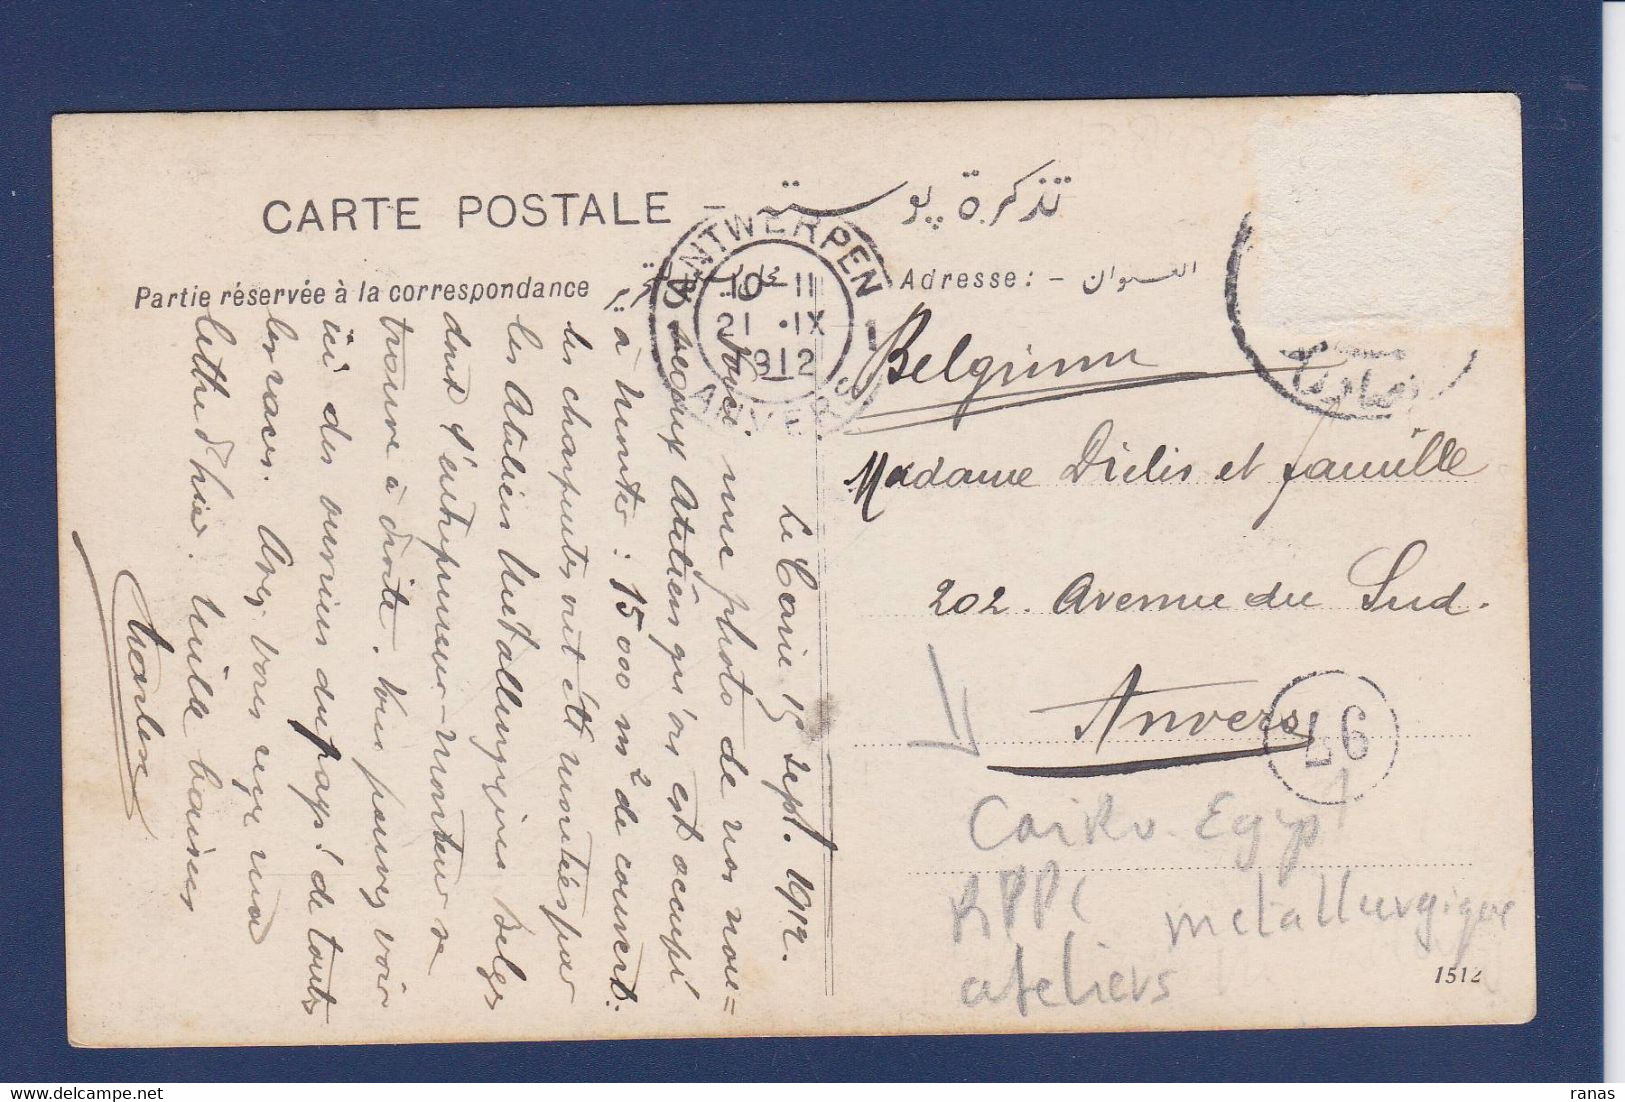 CARTE POSTALE - تذكرة پوستة
Partie réservée à la correspondance
Adresse: - العنوان
ANTWERPEN
10-11
21 · IX
1912
ANVERS
1
Le Caire 15 sept. 1912.
Voici une photo de nos nou=
veaux Ateliers qu'on est occupé
à monter : 15000 m² de couvert.
les charpentes ont été montées par
les Ateliers Métallurgiques Belges
dont l'entrepreneur-monteur se
trouve à droite. Vous pouvez voir
ici des ouvriers du pays! de toutes
les races. Avez vous reçu ma
lettre d'hier. Mille baisers
Charles
Belgium
Madame Dielis et famille
202. Avenue du Sud.
Anvers
97
Cairo Egypt
RPPC metallurgique
ateliers
1512
delcampe.net
ranas